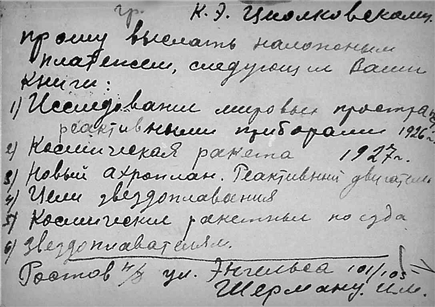 гр. К. Э. Циолковскому.
прошу выслать наложным
платежем, следующие Ваши
книги:
1) Исследования мировых простран.
реактивными приборами 1926 г.
2) Космическая ракета 1927 г.
3) Новый аэроплан. Реактивный двигатель
4) Цели звездоплавания
5) Космические ракетные поезда
6) Звездоплавателям.
Ростов н/Д ул. Энгельса 101/103
Шерману. И. М.